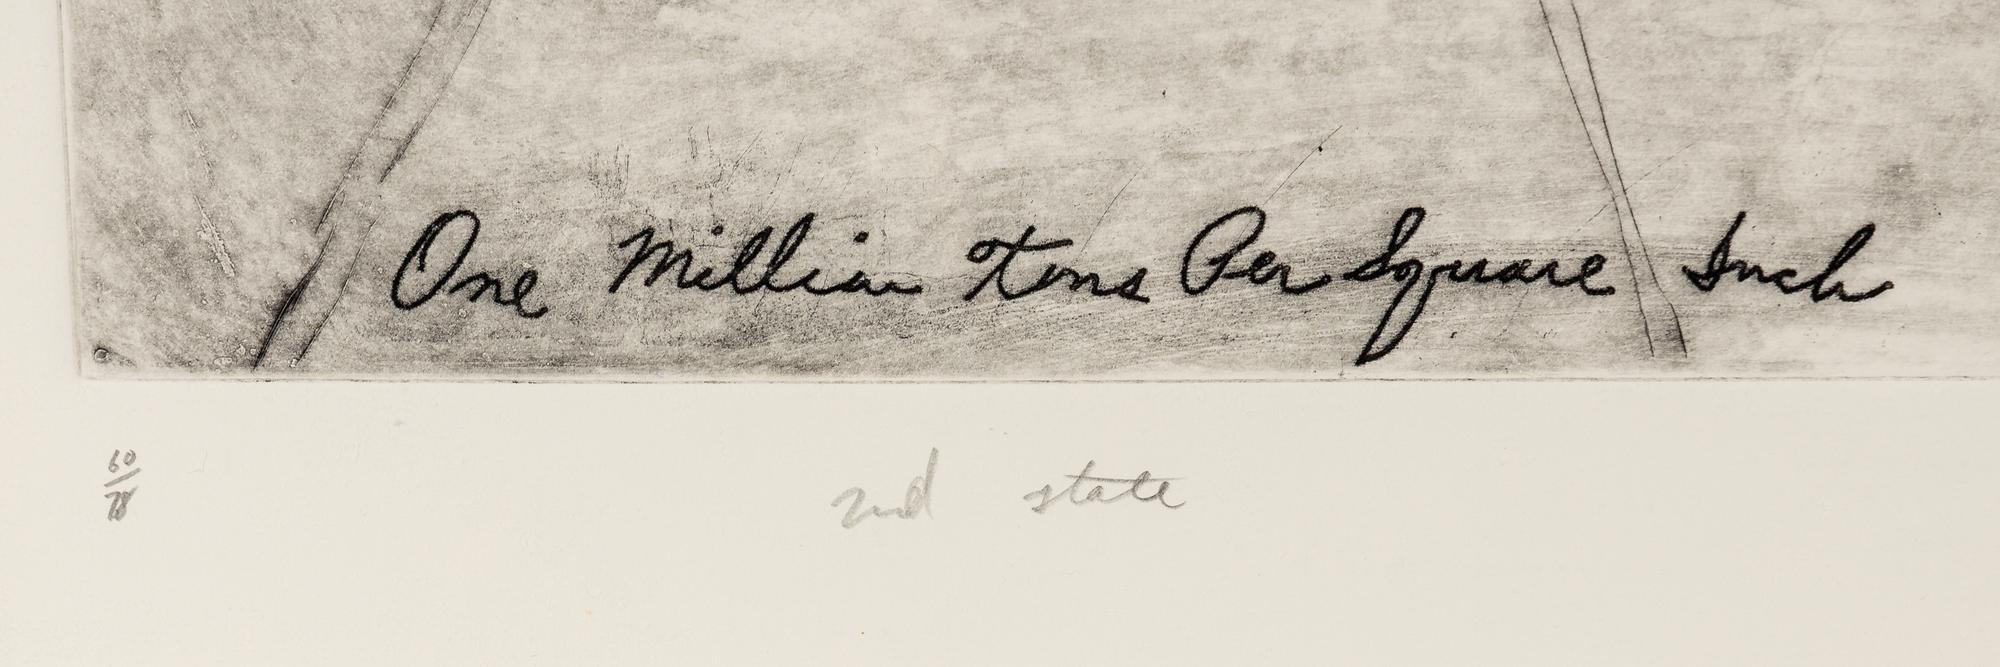 One Million Tons Per Square Inch
60/78
2nd state